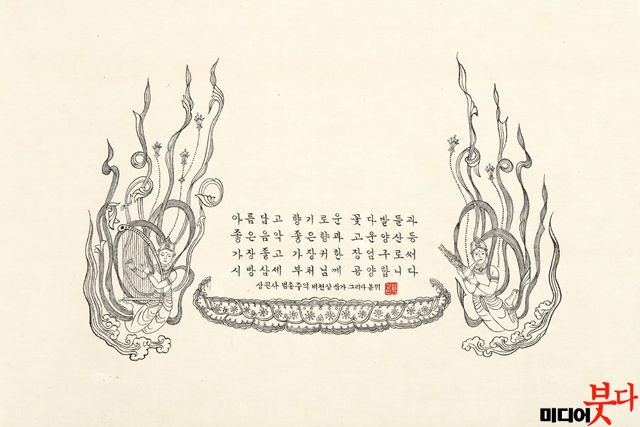 아름답고 향기로운 꽃다발들과
좋은음악 좋은향과 고운양산등
가장좋고 가장귀한 장엄구로써
시방삼세 부처님께 공양합니다
상원사 범종주악 비천상 삼가 그리다
미디어붓다